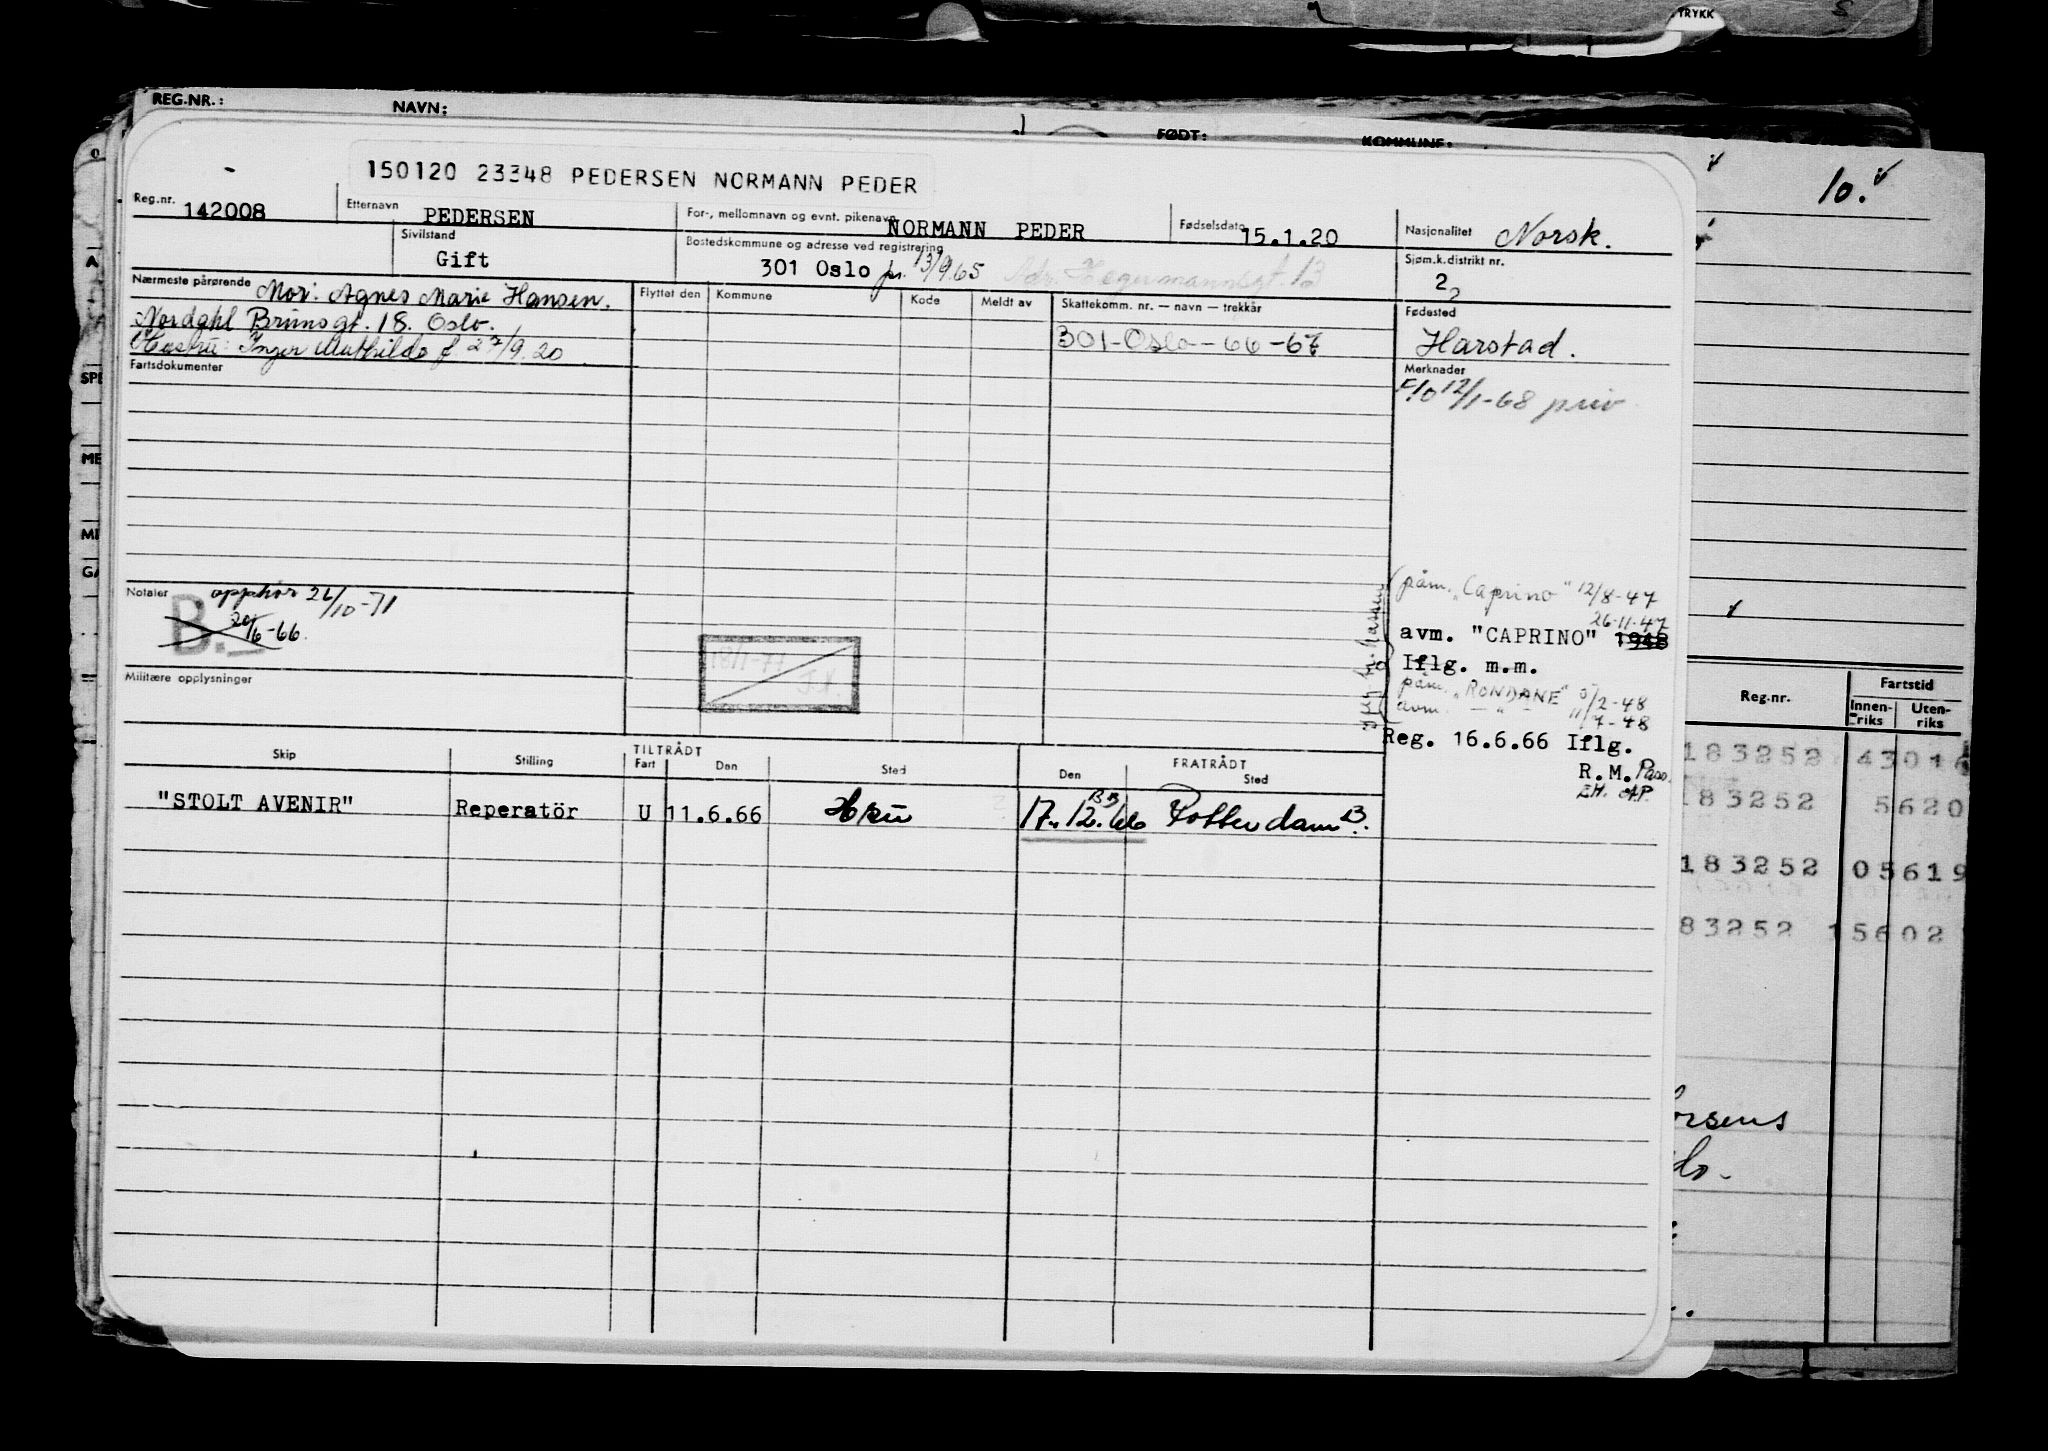 TRYKK
REG.NR.:
NAVN:
FØDT:
KOMMUNE:
10.
150120 23348 PEDERSEN NORMANN PEDER
Reg.nr. 142008
Etternavn PEDERSEN
For-, mellomnavn og evnt. pikenavn NORMANN PEDER
Fødselsdato 15.1.20
Nasjonalitet Norsk.
Sivilstand
Gift
Bostedskommune og adresse ved registrering
301 Oslo pr. 13/9.65 Adr. Hegermannsgt. 13
Sjøm.k.distrikt nr.
2
Nærmeste pårørende Mor: Agnes Marie Hansen.
Nordahl Brunsgt. 18. Oslo.
Hustru: Inger Mathilde f 27/9.20
Flyttet den
Kommune
Kode
Meldt av
Skattekomm. nr. — navn — trekkår
301-Oslo-66-67
Fødested
Harstad.
Fartsdokumenter
Merknader
F/O 12/1-68 priv
Notaler
opphør 26/10-71
B.
20/6-66.
18/1-77
J.N.
påm. "Caprino" 12/8-47
26-11-47
avm. "CAPRINO" 1948
Iflg. m.m.
påm. "RONDANE" 5/2-48
avm. — " — 11/7-48
Reg. 16.6.66 Iflg.
R.M. Pass.
Militære opplysninger
Skip
Stilling
TILTRÅDT
Fart
Den
Sted
FRATRÅDT
Den
Sted
"STOLT AVENIR" Reperatör U 11.6.66 17.12.66 Rotterdam
Reg.nr.
Fartstid
Innen-
riks
Uten-
riks
183252 43016
183252 5620
183252 05619
83252 15602